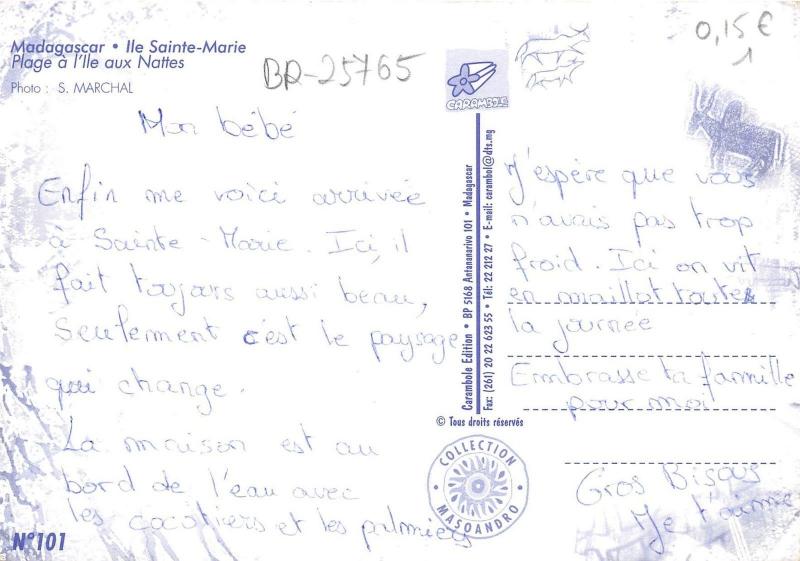 Madagascar • Ile Sainte-Marie
Plage à l'Ile aux Nattes
Photo : S. MARCHAL
BR-25765
0,15 €
1
CARAMBOLE
Mon bébé
Enfin me voici arrivée
à Sainte-Marie. Ici, il
fait toujours aussi beau,
Seulement c'est le paysage
qui change.
La maison est au
bord de l'eau avec
les cocotiers et les palmiers
N°101
Carambole Edition • BP 5168 Antananarivo 101 • Madagascar
Fax: (261) 20 22 623 55 • Tél: 22 212 27 • E-mail: carambol@dts.mg
© Tous droits réservés
COLLECTION
MASOANDRO
J'espère que vous
n'avais pas trop
froid. Ici on vit
en maillot toute
la journée
Embrasse ta famille
pour moi
Gros Bisous
Je t'aime